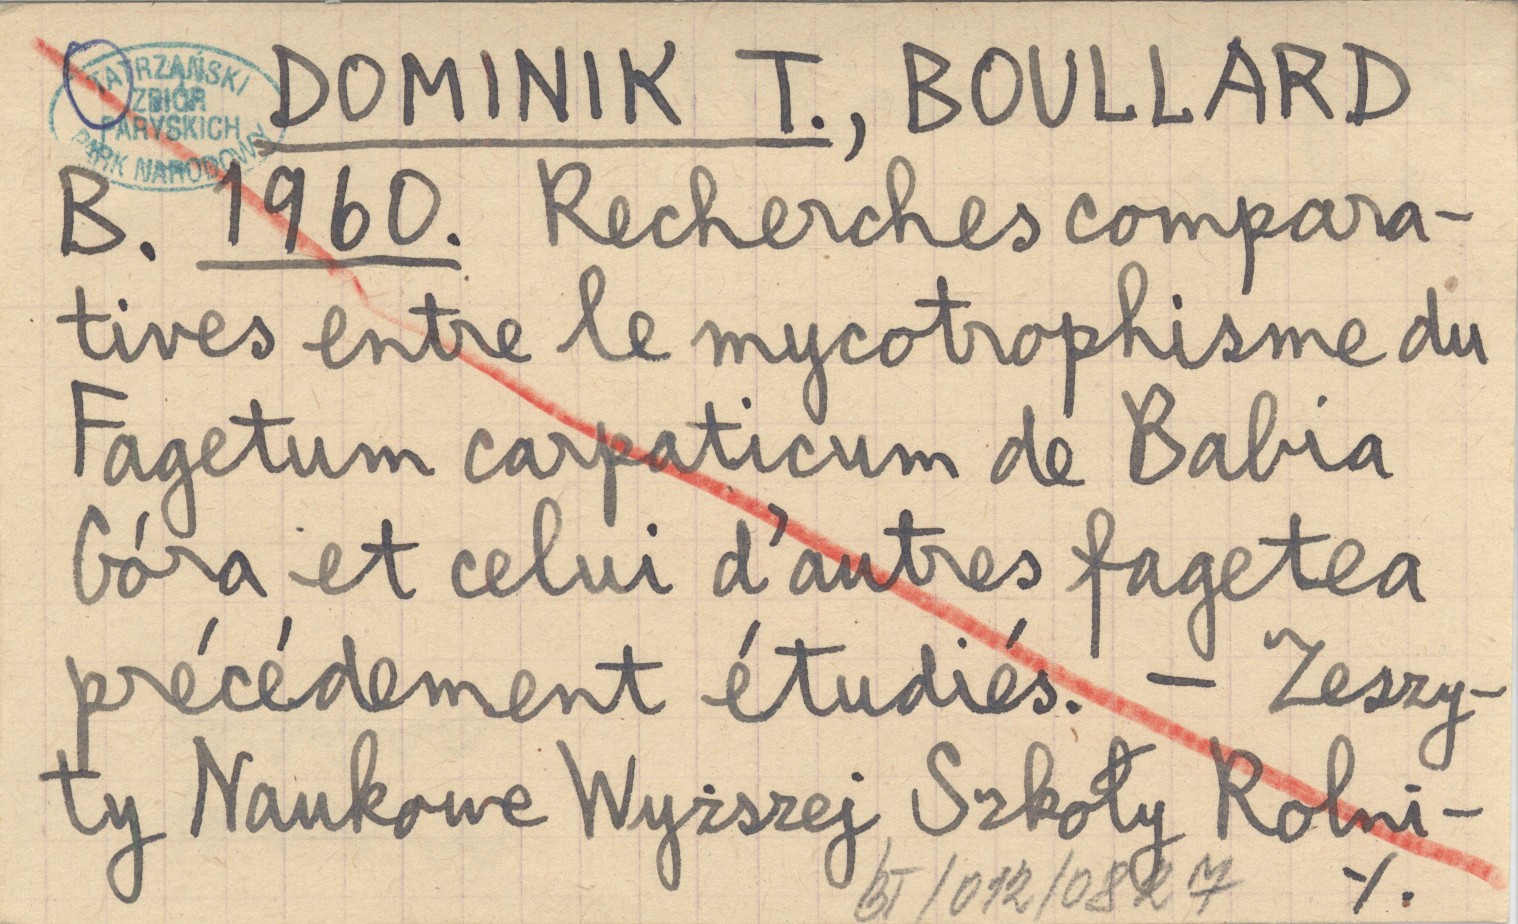 TATRZAŃSKI
ZBIÓR
PARYSKICH
PARK NARODOWY
DOMINIK T., BOULLARD
B. 1960. Recherches compara-
tives entre le mycotrophisme du
Fagetum carpaticum de Babia
Góra et celui d'autres fagetea
précédement étudiés. — Zeszy-
ty Naukowe Wyższej Szkoły Rolni-
BT/012/0827 ·/.